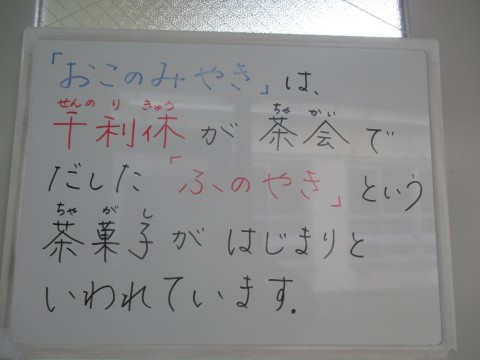 「おこのみやき」は、
せんのりきゅう ちゃかい
千利休が茶会で
だした「ふのやき」という
ちゃがし
茶菓子がはじまりと
いわれています.